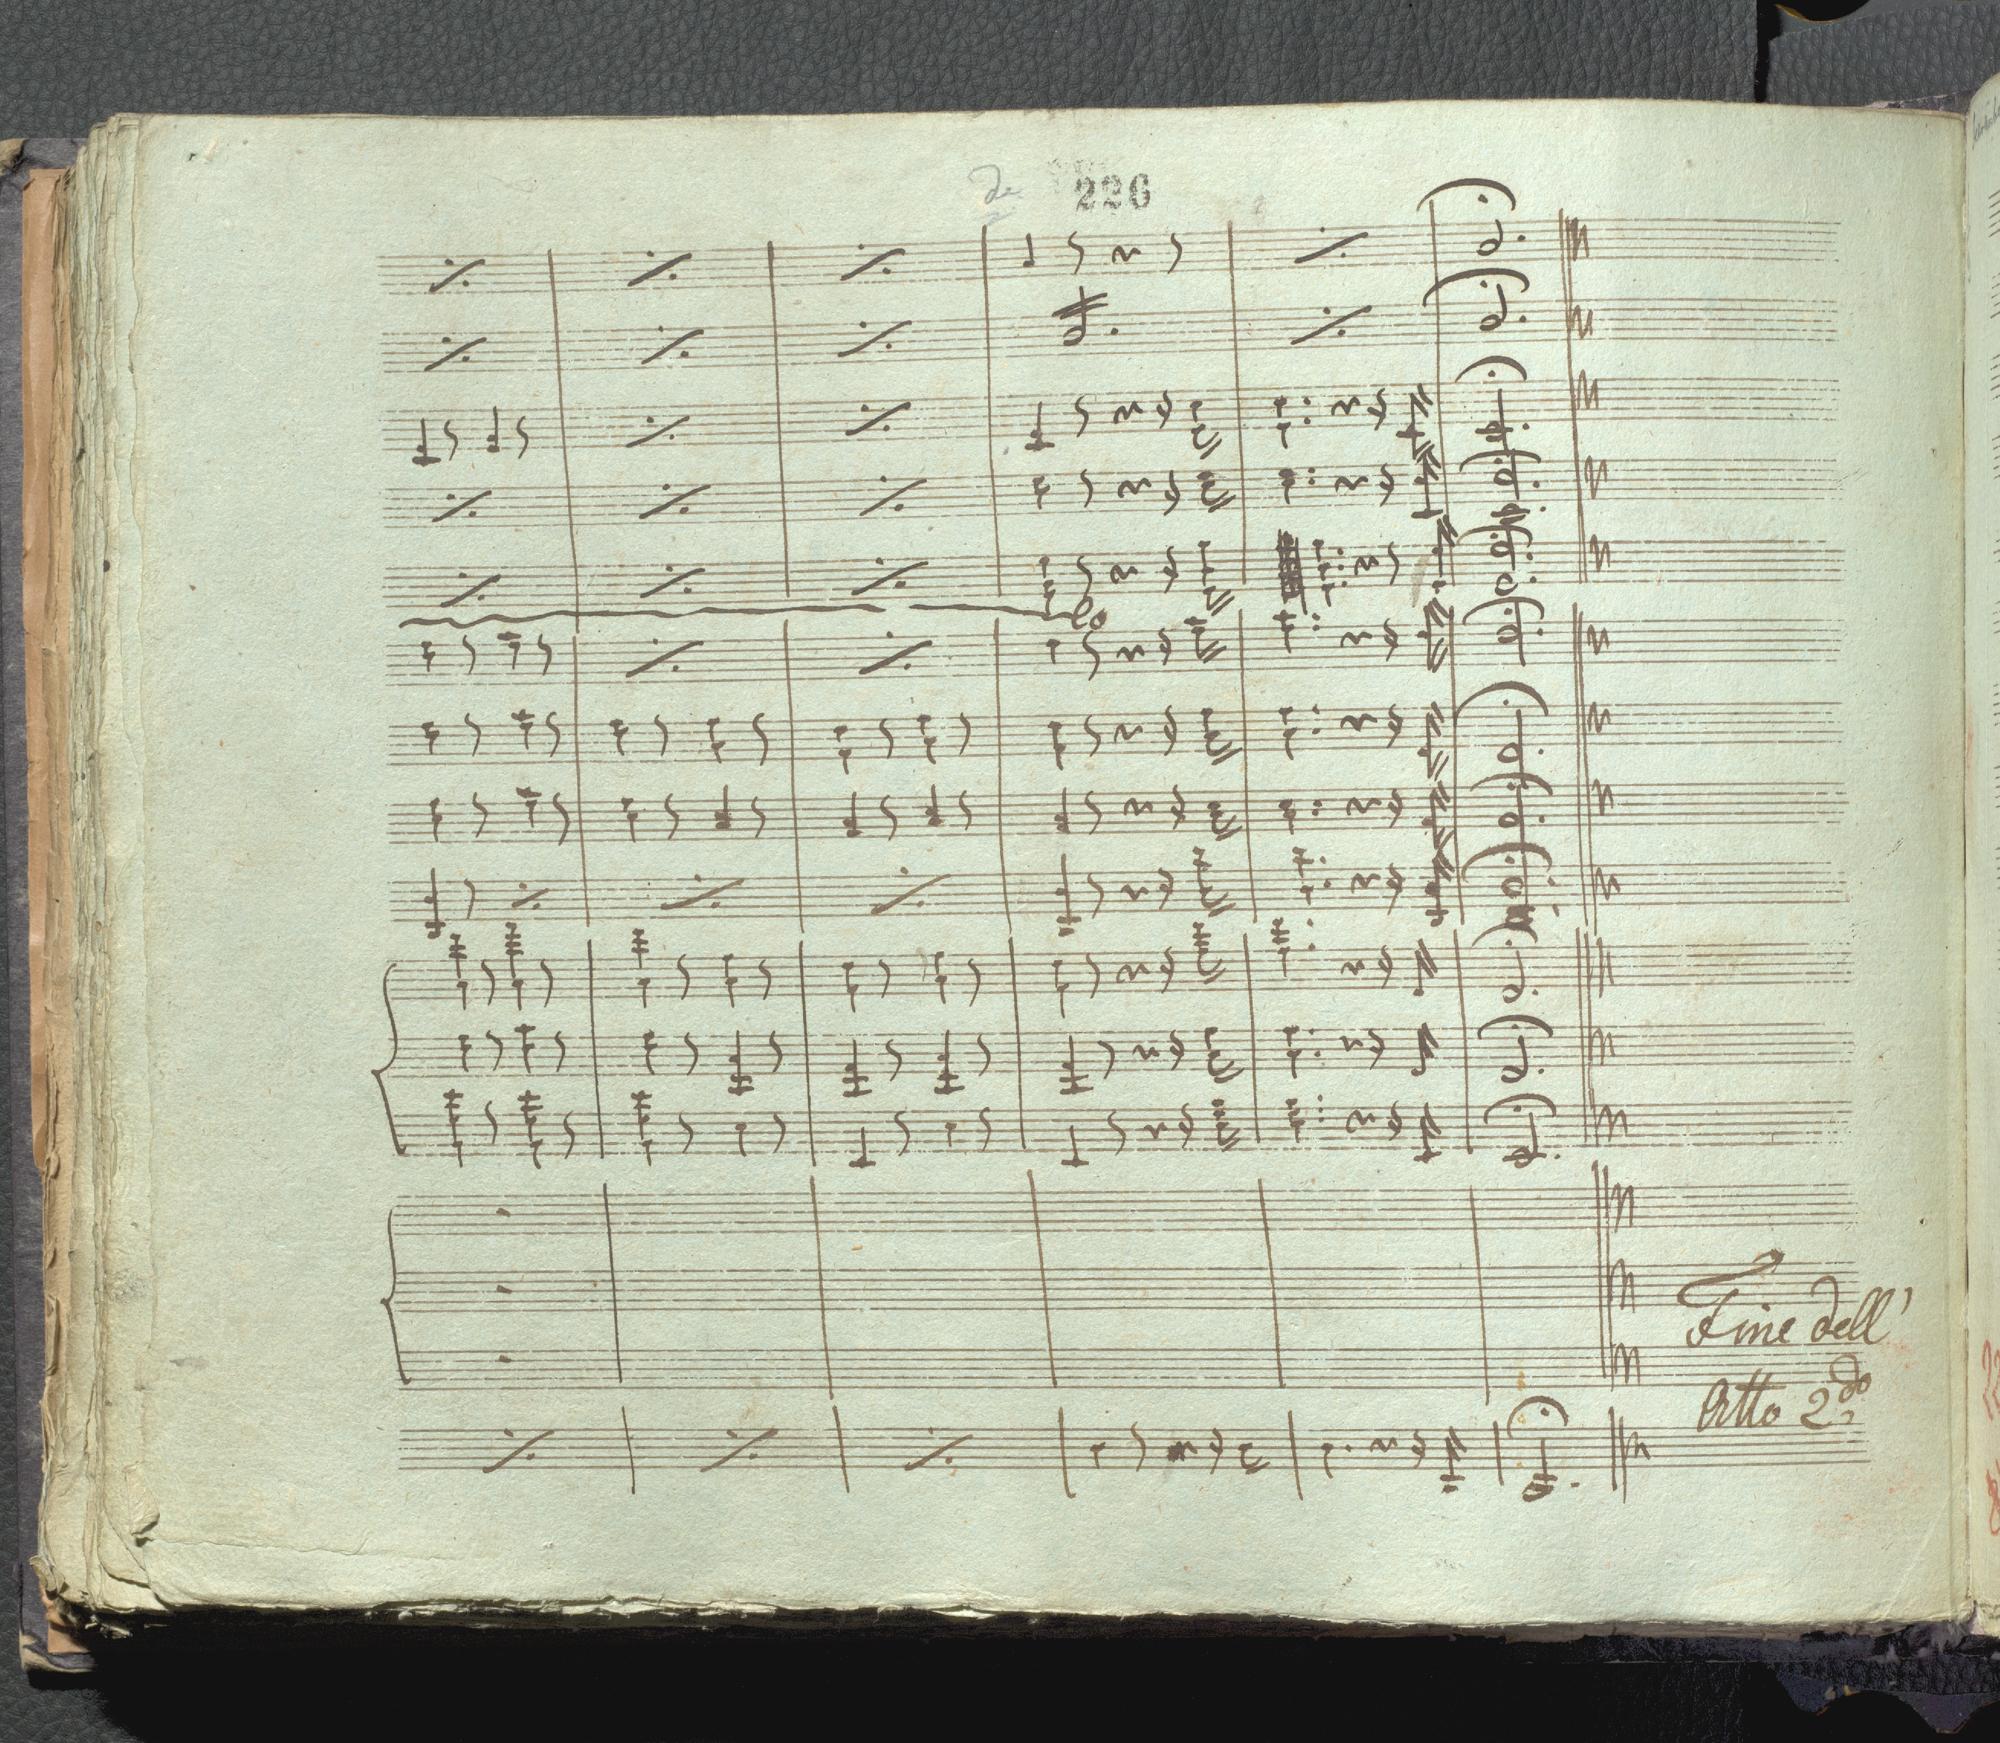 226
lo
Fine dell'
Atto 2do